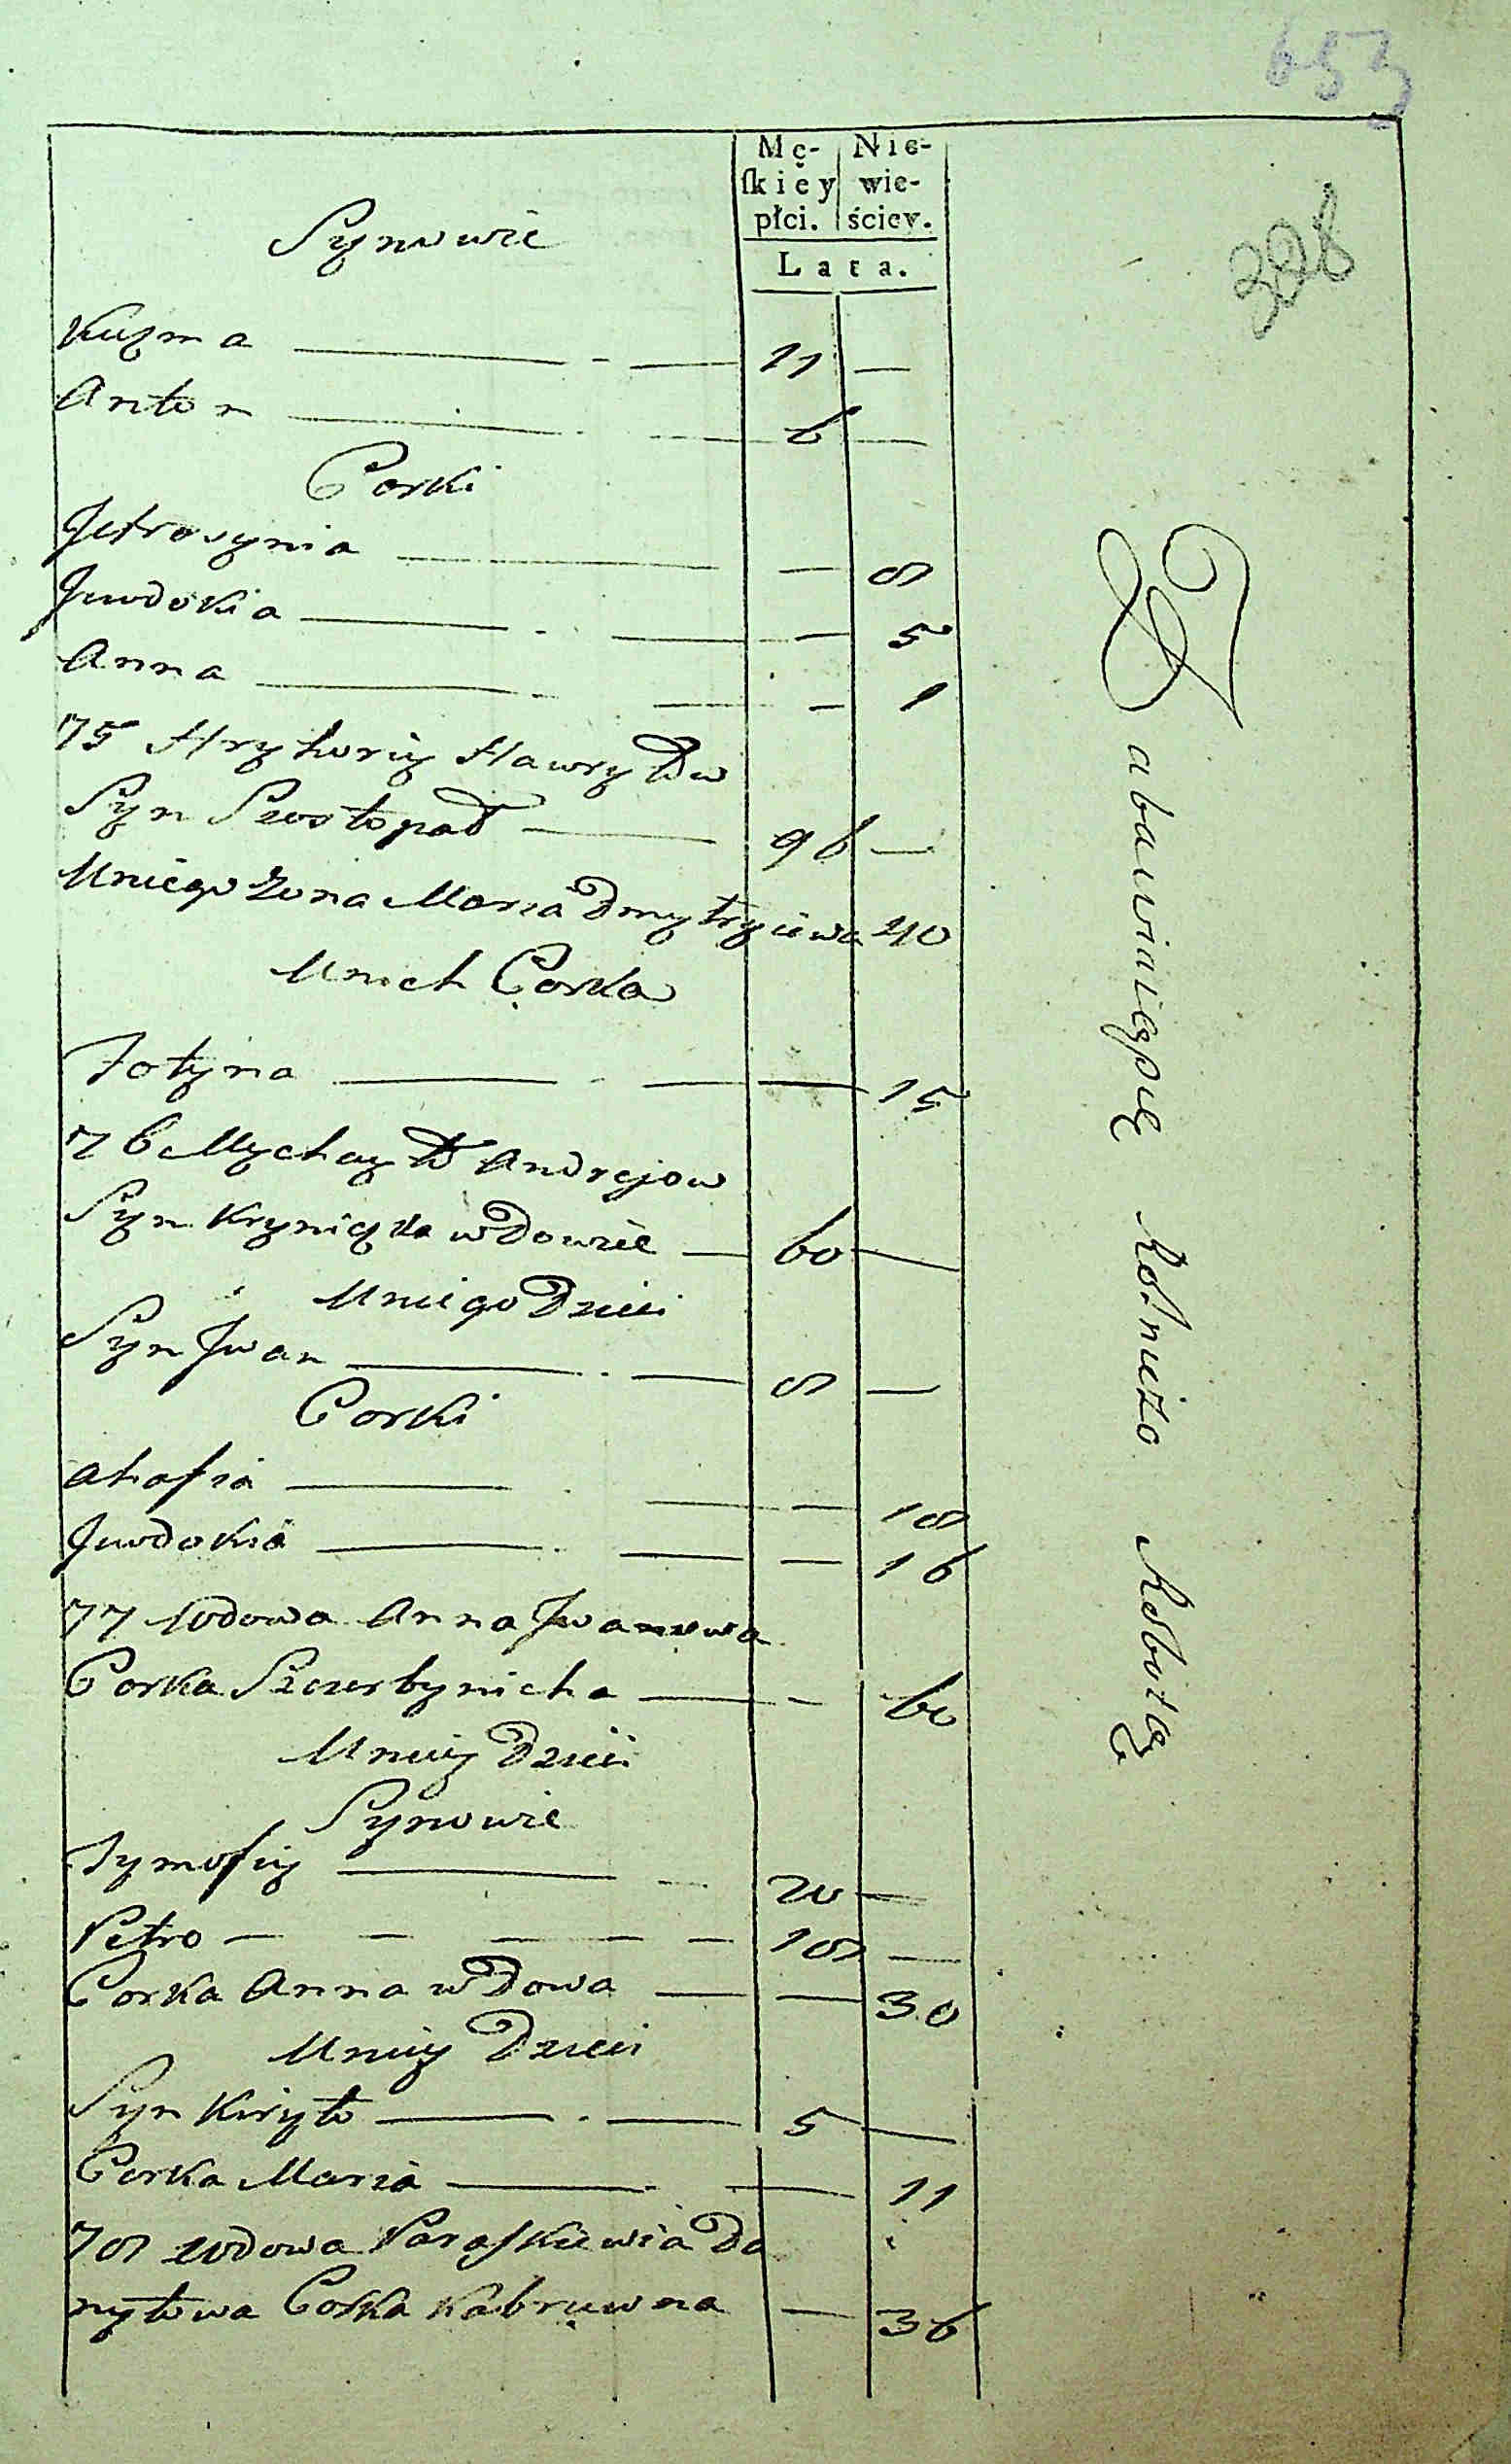 653
328
Mę- Nie-
skiey wie-
płci. ściey.
Lata.
Synowie
Kuzma — 11 —
Anton — 6 —
Corki
Jefrosynia — — 8
Jewdokia — — 5
Anna — — 1
75 Hryhoriy Hawryłow
Syn Szostopad — 96 —
Uniego Zona Maria Dmytryiewa 40
Unich Corka
Fotyna — — 15
76 Mychayło Andrejow
Syn Krynicza wdowiec — 60 —
Uniego Dzieci
Syn Jwan — 8 —
Corki
Ahafia — — 18
Jewdokia — — 16
77 Wdowa Anna Jwanowa
Corka Szczerbynicha — — 60
Unieiy Dzieci
Synowie
Tymofiy — 20 —
Petro — 18 —
Corka Anna wdowa — — 30
Unieiy Dzieci
Syn Kiryło — 5 —
Corka Maria — — 11
78 Wdowa Paraskiewia Da
nyłowa Corka Kabruwna — 36
Zabawiaięsię Rolniczo Robotą